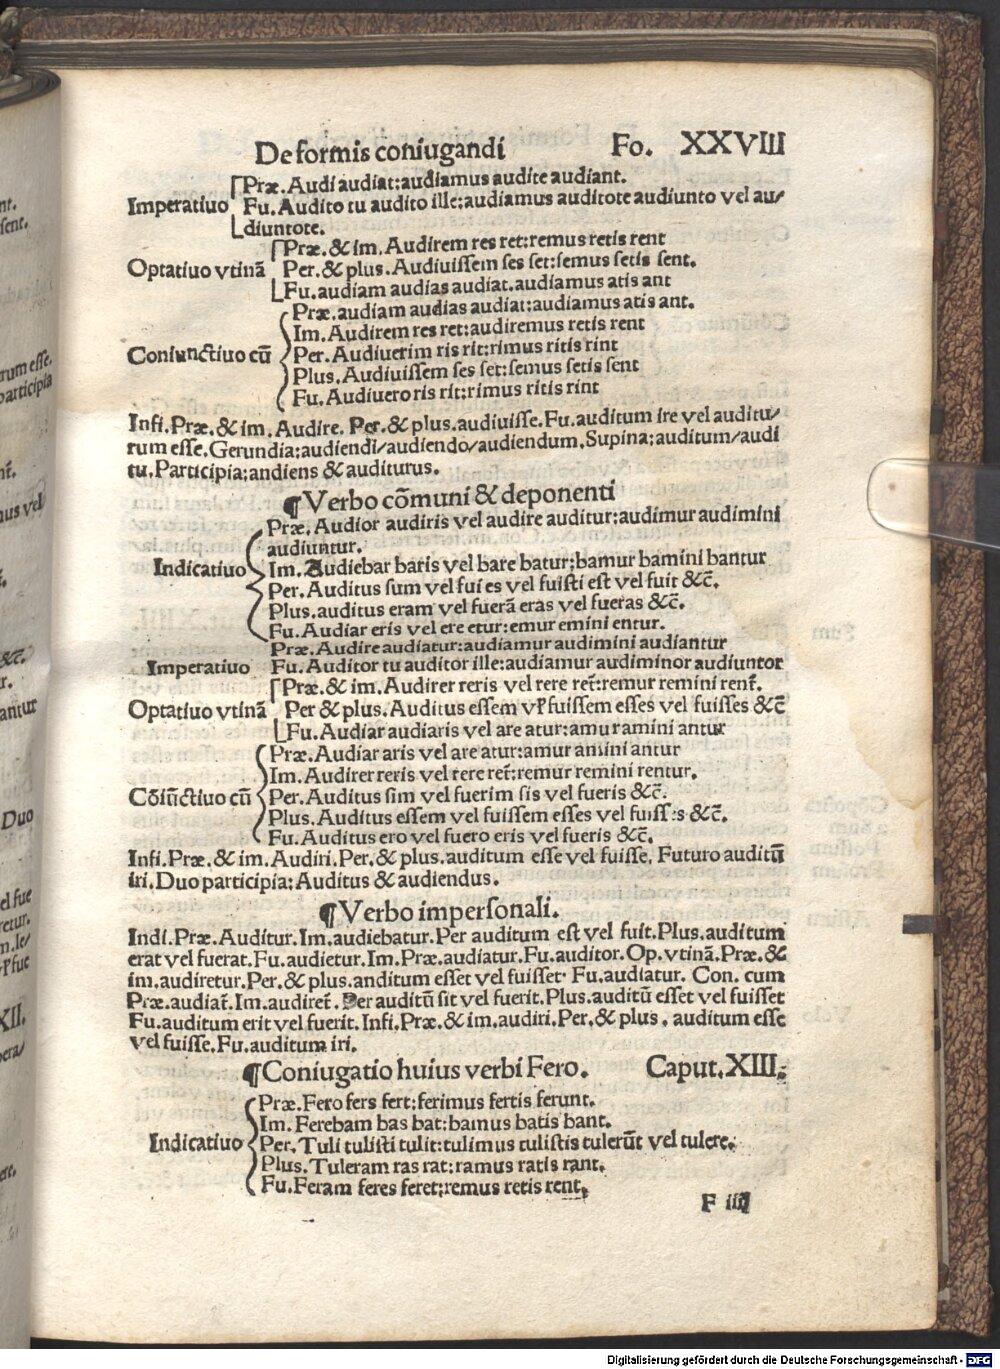 De formis coniugandi Fo. XXVIII
Præ. Audi audiat:audiamus audite audiant.
Imperatiuo Fu. Audito tu audito ille:audiamus auditote audiunto vel au/
diuntote.
Præ. & im. Audirem res ret:remus retis rent
Optatiuo vtinã Per. & plus. Audiuissem ses set:semus setis sent.
Fu. audiam audias audiat.audiamus atis ant
Præ. audiam audias audiat:audiamus atis ant.
Im. Audirem res ret:audiremus retis rent
Coniunctiuo cũ Per. Audiuerim ris rit:rimus ritis rint
Plus. Audiuissem ses set:semus setis sent
Fu. Audiuero ris rit:rimus ritis rint
Infi. Præ. & im. Audire. Per. & plus. audiuisse. Fu. auditum ire vel auditu/
rum esse. Gerundia:audiendi/audiendo/audiendum. Supina:auditum/audi
tu. Participia:andiens & auditurus.
¶Verbo cõmuni & deponenti
Præ. Audior audiris vel audire auditur:audimur audimini
audiuntur.
Indicatiuo Im. Audiebar baris vel bare batur:bamur bamini bantur
Per. Auditus sum vel fui es vel fuisti est vel fuit &c̃.
Plus. auditus eram vel fuerã eras vel fueras &c̃.
Fu. Audiar eris vel ere etur:emur emini entur.
Præ. Audire audiatur:audiamur audimini audiantur
Imperatiuo Fu. Auditor tu auditor ille:audiamur audiminor audiuntor
Præ. & im. Audirer reris vel rere ret̃:remur remini rent̃.
Optatiuo vtinã Per & plus. Auditus essem vl̃ fuissem esses vel fuisses &c̃
Fu. Audiar audiaris vel are atur:amur amini antur
Præ. Audiar aris vel are atur:amur amini antur
Im. Audirer reris vel rere ret̃:remur remini rentur.
Cõiũctiuo cũ Per. Auditus sim vel fuerim sis vel fueris &c̃.
Plus. Auditus essem vel fuissem esses vel fuiss:s &c̃.
Fu. Auditus ero vel fuero eris vel fueris &c̃.
Infi. Præ. & im. Audiri. Per. & plus. auditum esse vel fuisse. Futuro auditũ
iri. Duo participia:Auditus & audiendus.
¶Verbo impersonali.
Indi. Præ. Auditur. Im. audiebatur. Per auditum est vel fuit. Plus. auditum
erat vel fuerat. Fu. audietur. Im. Præ. audiatur. Fu. auditor. Op. vtinã. Præ. &
im. audiretur. Per. & plus. anditum esset vel fuisset. Fu. audiatur. Con. cum
Præ. audiat̃. Im. audiret̃. Per auditũ sit vel fuerit. Plus. auditũ esset vel fuisset
Fu. auditum erit vel fuerit. Infi. Præ. & im. audiri. Per. & plus. auditum esse
vel fuisse. Fu. auditum iri.
¶Coniugatio huius verbi Fero. Caput. XIII.
Præ. Fero fers fert:ferimus fertis ferunt.
Im. Ferebam bas bat:bamus batis bant.
Indicatiuo Per. Tuli tulisti tulit:tulimus tulistis tulerũt vel tulere.
Plus. Tuleram ras rat:ramus ratis rant.
Fu. Feram feres feret:remus retis rent.
F iiij
Digitalisierung gefördert durch die Deutsche Forschungsgemeinschaft - DFG